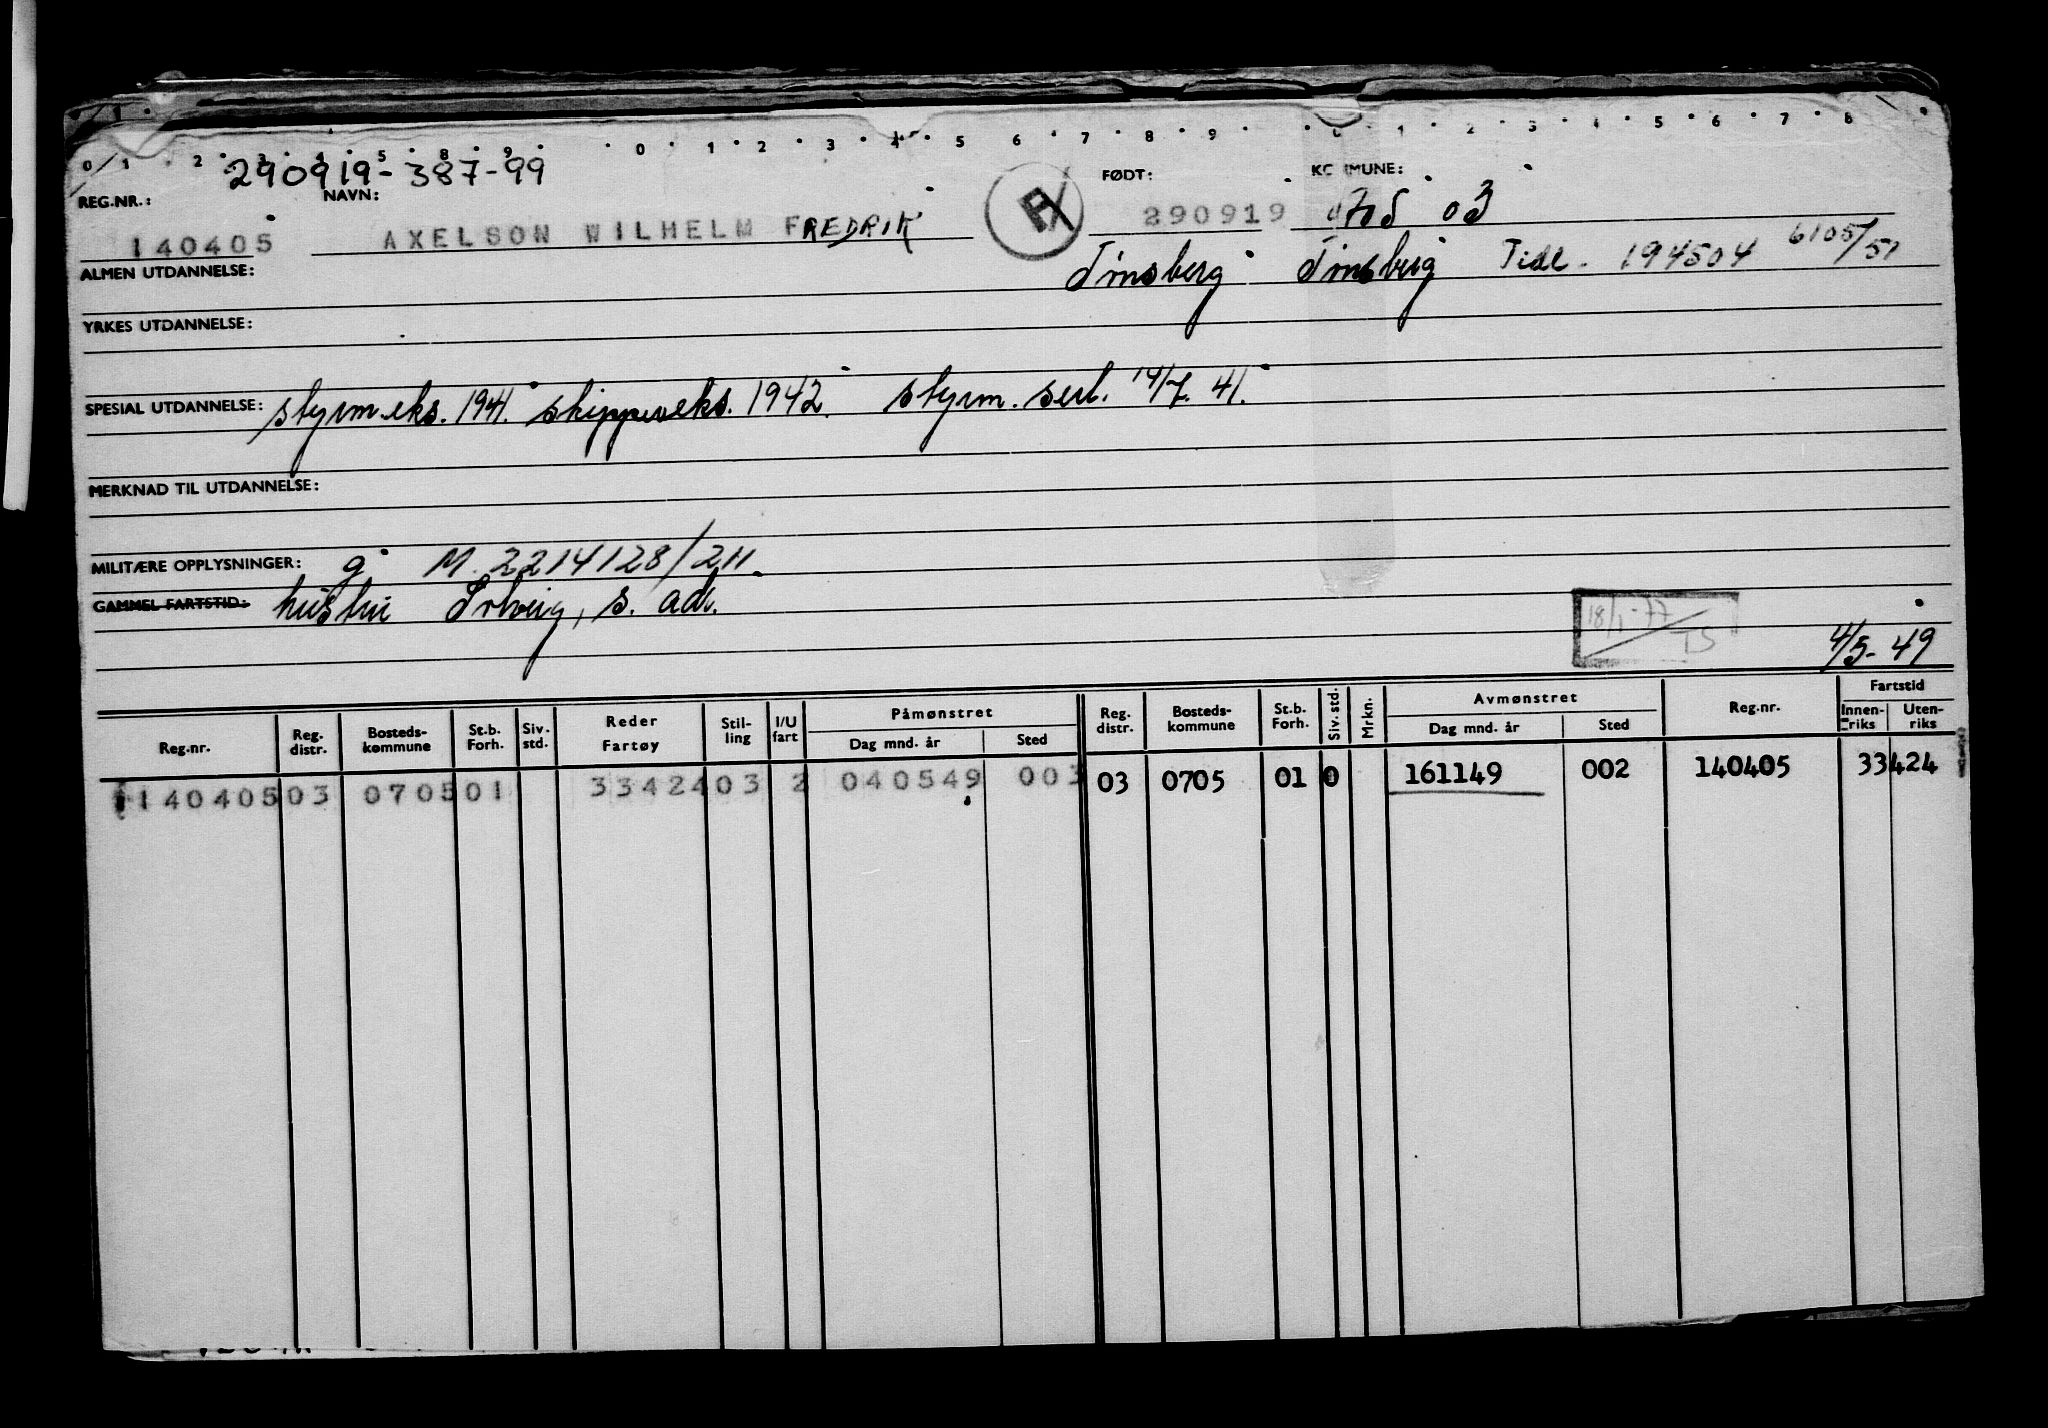 0 1 2 3 4 5 8 9 0 1 2 3 4 5 6 7 8 9 0 1 2 3 4 5 6 7 8
290919-387-99
REG.NR.: NAVN: FØDT: KOMMUNE:
140405 AXELSON WILHELM FREDRIK 290919 0705 03
ALMEN UTDANNELSE: Tønsberg Tønsberg Tidl. 194504 6105/51
YRKES UTDANNELSE:
SPESIAL UTDANNELSE: styrm.eks. 1941. skippereks. 1942. styrm. sert. 14/7. 41.
MERKNAD TIL UTDANNELSE:
MILITÆRE OPPLYSNINGER: g M. 2214128/211.
GAMMEL FARTSTID: hustru Solveig, s. adr.
18/1-77
TS
4/5-49
Reg.nr. Reg. distr. Bosteds-kommune St.b. Forh. Siv. std. Reder Fartøy Stil-ling I/U fart Påmønstret Dag mnd. år Sted Reg. distr. Bosteds-kommune St.b. Forh. Siv. std. Mrkn. Avmønstret Dag mnd. år Sted Reg.nr. Fartstid Innen-riks Uten-riks
140405 03 0705 01 33424 03 2 040549 003 03 0705 01 0 161149 002 140405 33424